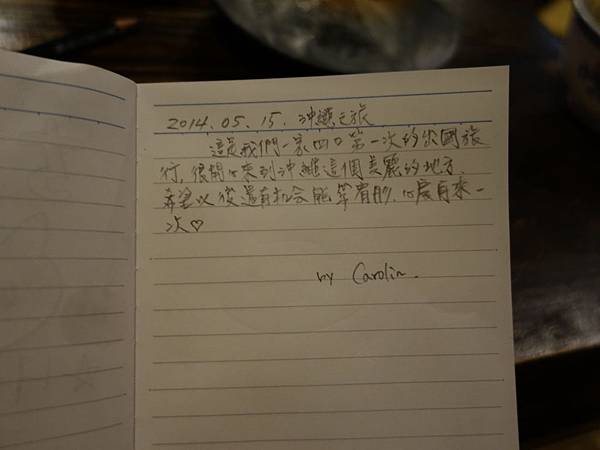 2014.05.15. 沖繩之旅
這是我們一家四口第一次的出國旅
行,很開心來到沖繩這個美麗的地方,
希望以後還有機会能 二度再來一
次♡
by Carolin.